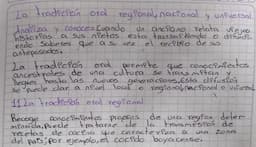 La tradición oral regional, nacional y universal
Analiza y conoce: Cuando un anciano relata viejas
historias a sus nietos esta transmitiendo el difundi
endo Saberes que a su vez el recibió de su
antepasados.
La tradición oral permite que conocimientos
ancestrales de una cultura se trasmitan y
lleguen hasta las nuevas generaciones. Esta difusión
se puede dar a nivel local o regional, nacional o universal
1) La tradición oral regional
Recoge conocimientos propios de una región deter
minada. Puede tratarse de la transmisión de
recetas de cocina que caracteriza a una zona
del país, por ejemplo, el cocido boyacense.